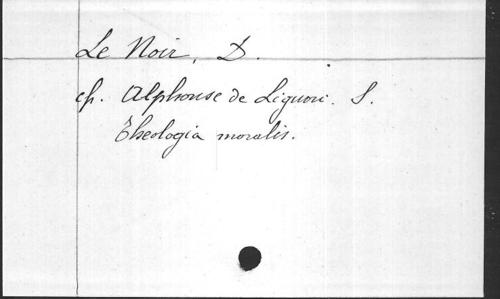 Le Noir, D.
cfr. Alphonse de Liguori. S.
Theologia moralis.